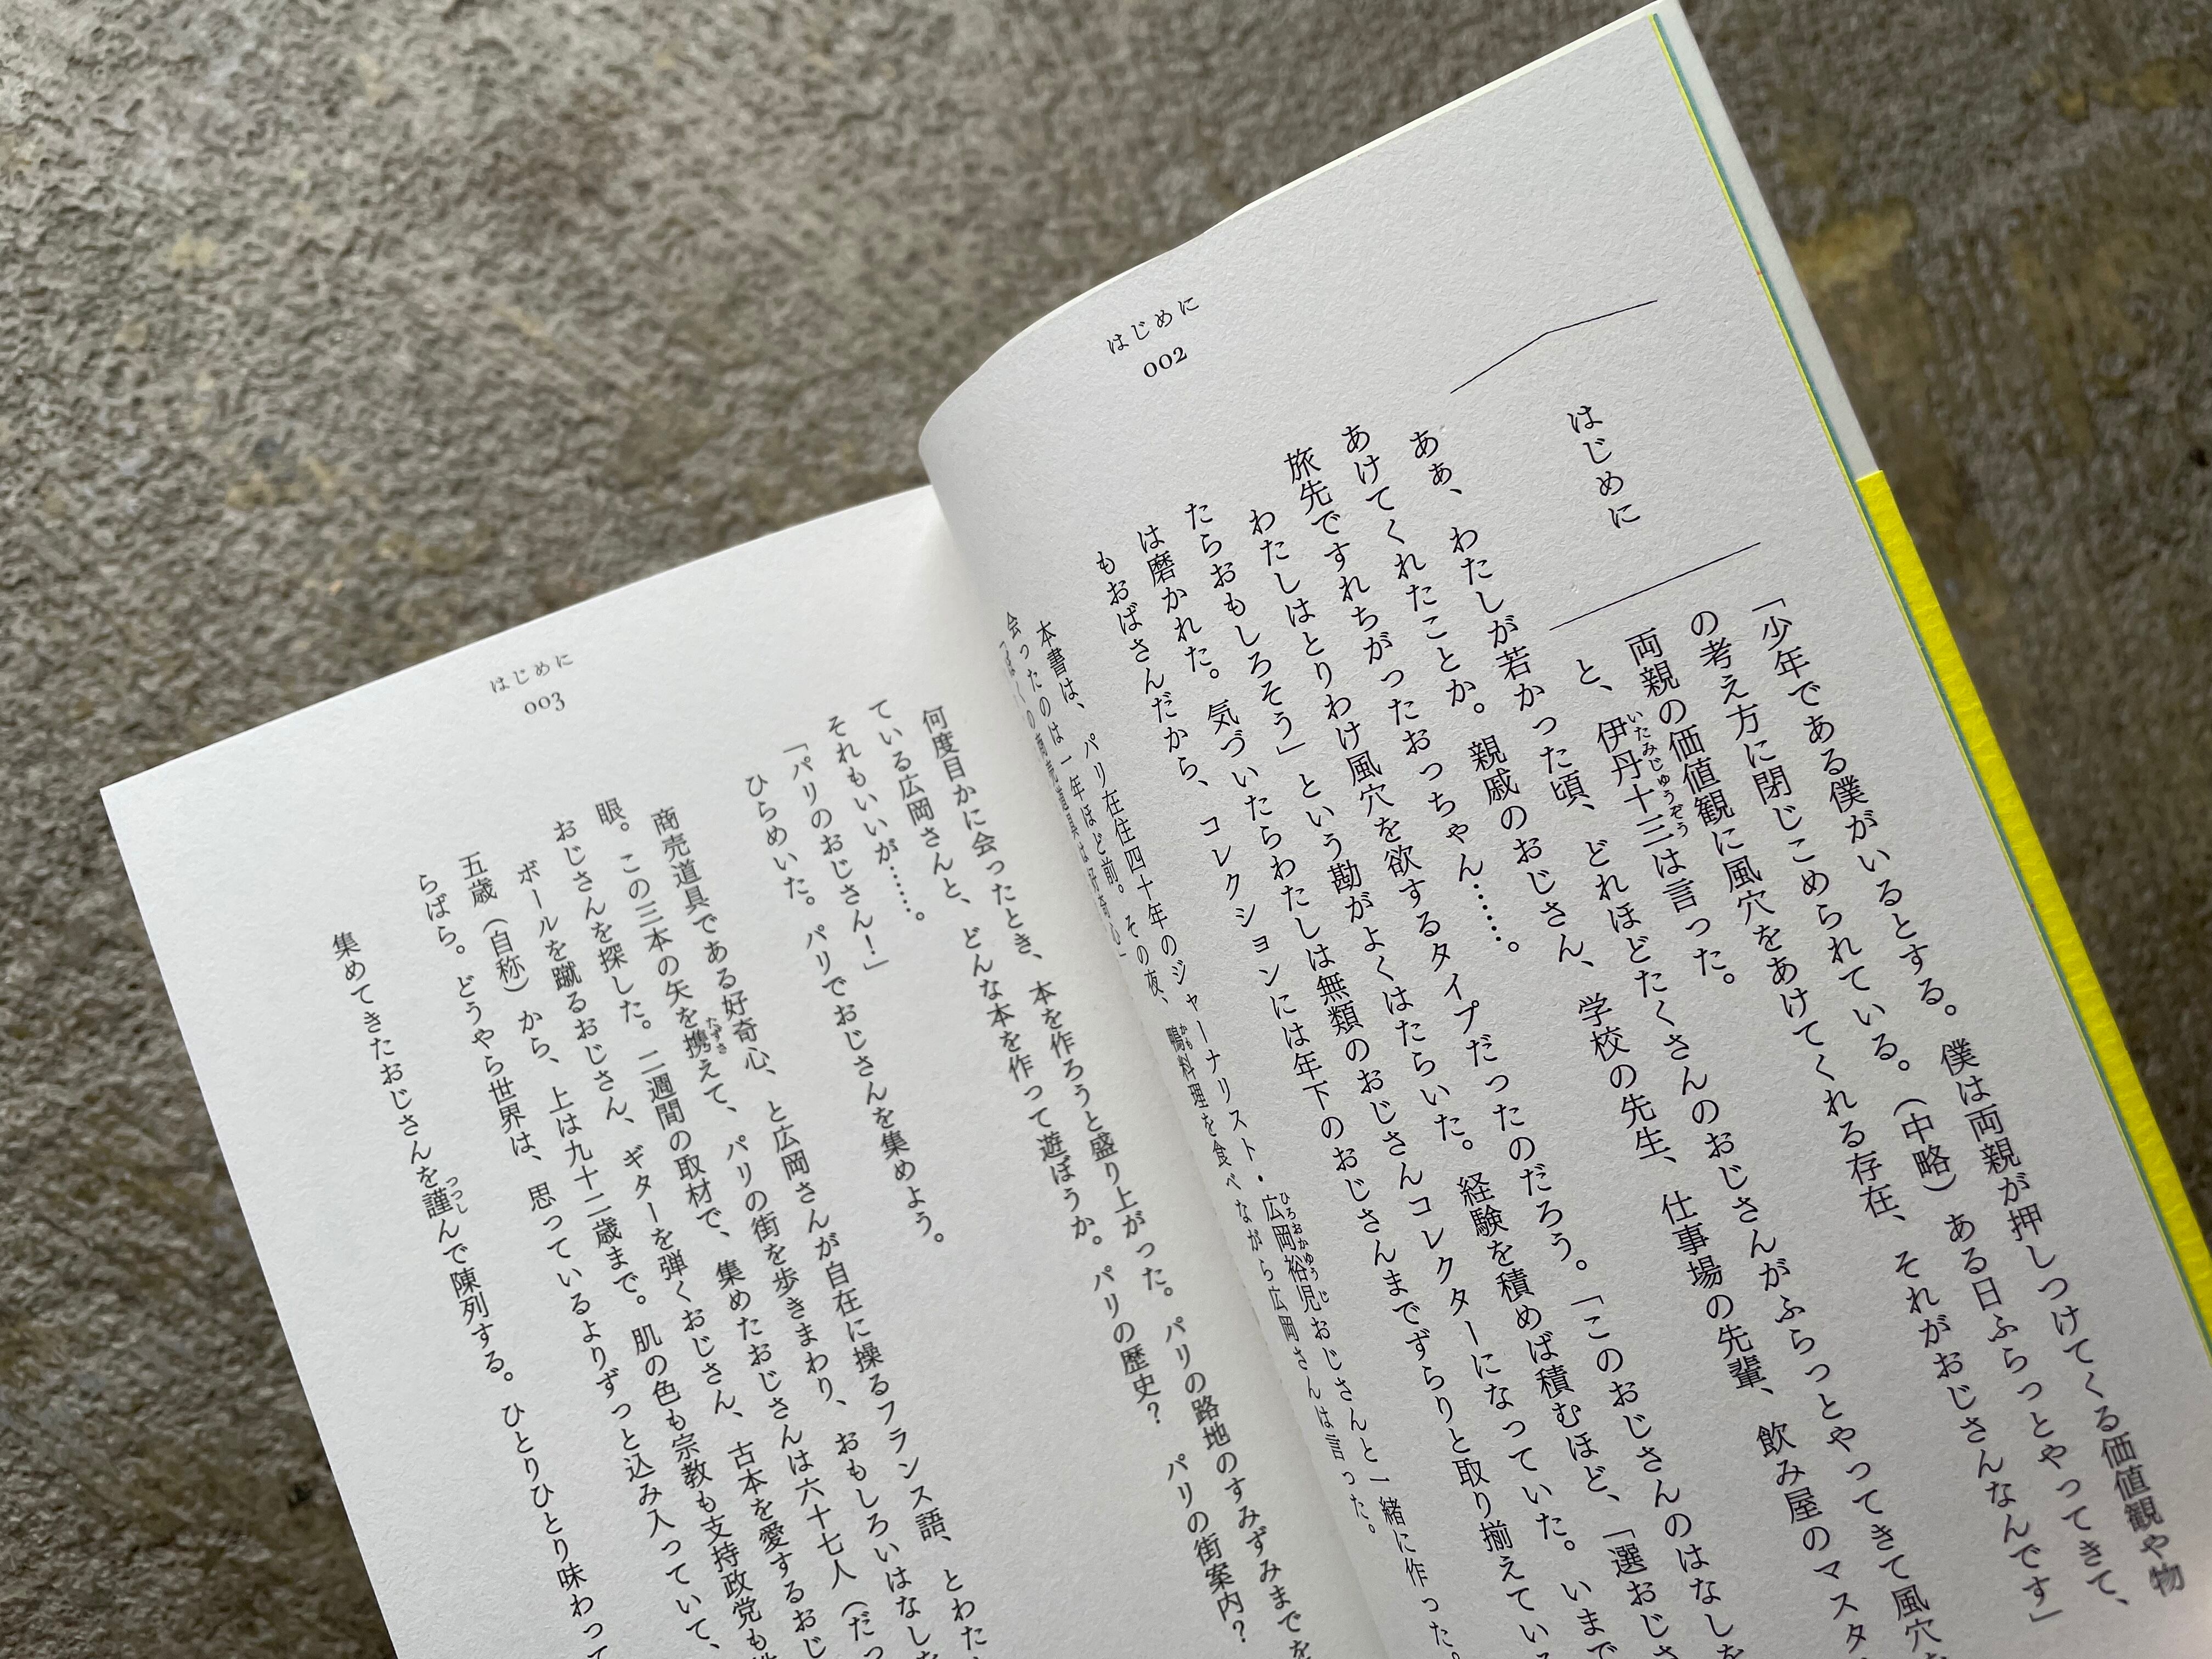 はじめに
002
はじめに
「少年である僕がいるとする。僕は両親が押しつけてくる価値観や物
の考え方に閉じこめられている。(中略)ある日ふらっとやってきて、
両親の価値観に風穴をあけてくれる存在、それがおじさんなんです」
と、伊丹十三は言った。
あぁ、わたしが若かった頃、どれほどたくさんのおじさんがふらっとやってきて風穴を
あけてくれたことか。親戚のおじさん、学校の先生、仕事場の先輩、飲み屋のマスタ
旅先ですれちがったおっちゃん……。
わたしはとりわけ風穴を欲するタイプだったのだろう。「このおじさんのはなしを
たらおもしろそう」という勘がよくはたらいた。経験を積めば積むほど、「選おじさ
は磨かれた。気づいたらわたしは無類のおじさんコレクターになっていた。いまで
もおばさんだから、コレクションには年下のおじさんまでずらりと取り揃えている
本書は、パリ在住四十年のジャーナリスト・広岡裕児おじさんと一緒に作った。
会ったのは一年ほど前。その夜、鴨料理を食べながら広岡さんは言った。
の商売道具は好奇心」
はじめに
003
何度目かに会ったとき、本を作ろうと盛り上がった。パリの路地のすみずみまでを
ている広岡さんと、どんな本を作って遊ぼうか。パリの歴史? パリの街案内?
それもいいが……。
「パリのおじさん!」
ひらめいた。パリでおじさんを集めよう。
商売道具である好奇心、と広岡さんが自在に操るフランス語、とわた
眼。この三本の矢を携えて、パリの街を歩きまわり、おもしろいはなしを
おじさんを探した。二週間の取材で、集めたおじさんは六十七人(だっ
ボールを蹴るおじさん、ギターを弾くおじさん、古本を愛するおじ
五歳(自称)から、上は九十二歳まで。肌の色も宗教も支持政党も
らばら。どうやら世界は、思っているよりずっと込み入っていて、
集めてきたおじさんを謹んで陳列する。ひとりひとり味わって